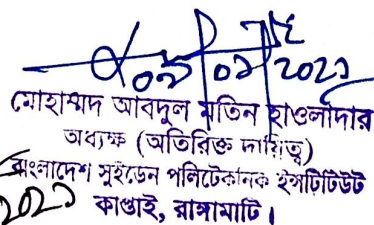 ০৯/০৯/২০২১
মোহাম্মদ আবদুল মতিন হাওলাদার
অধ্যক্ষ (অতিরিক্ত দায়িত্ব)
বাংলাদেশ সুইডেন পলিটেকনিক ইন্সটিটিউট
২০২১ কাপ্তাই, রাঙ্গামাটি।